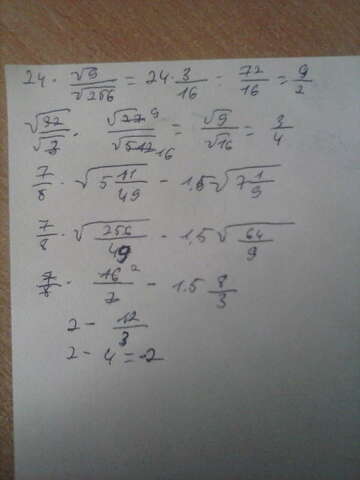 24 · √9/√256 = 24 · 3/16 - 72/16 = 9/2
√32/√3 · √27 9/√512 16 = √9/√16 = 3/4
7/8 · √5 11/49 - 1,5 √7 1/9
7/8 · √256/49 - 1,5 √64/9
7/8 · 16 2/7 - 1.5 8/3
2 - 12/3
2 - 4 = -2